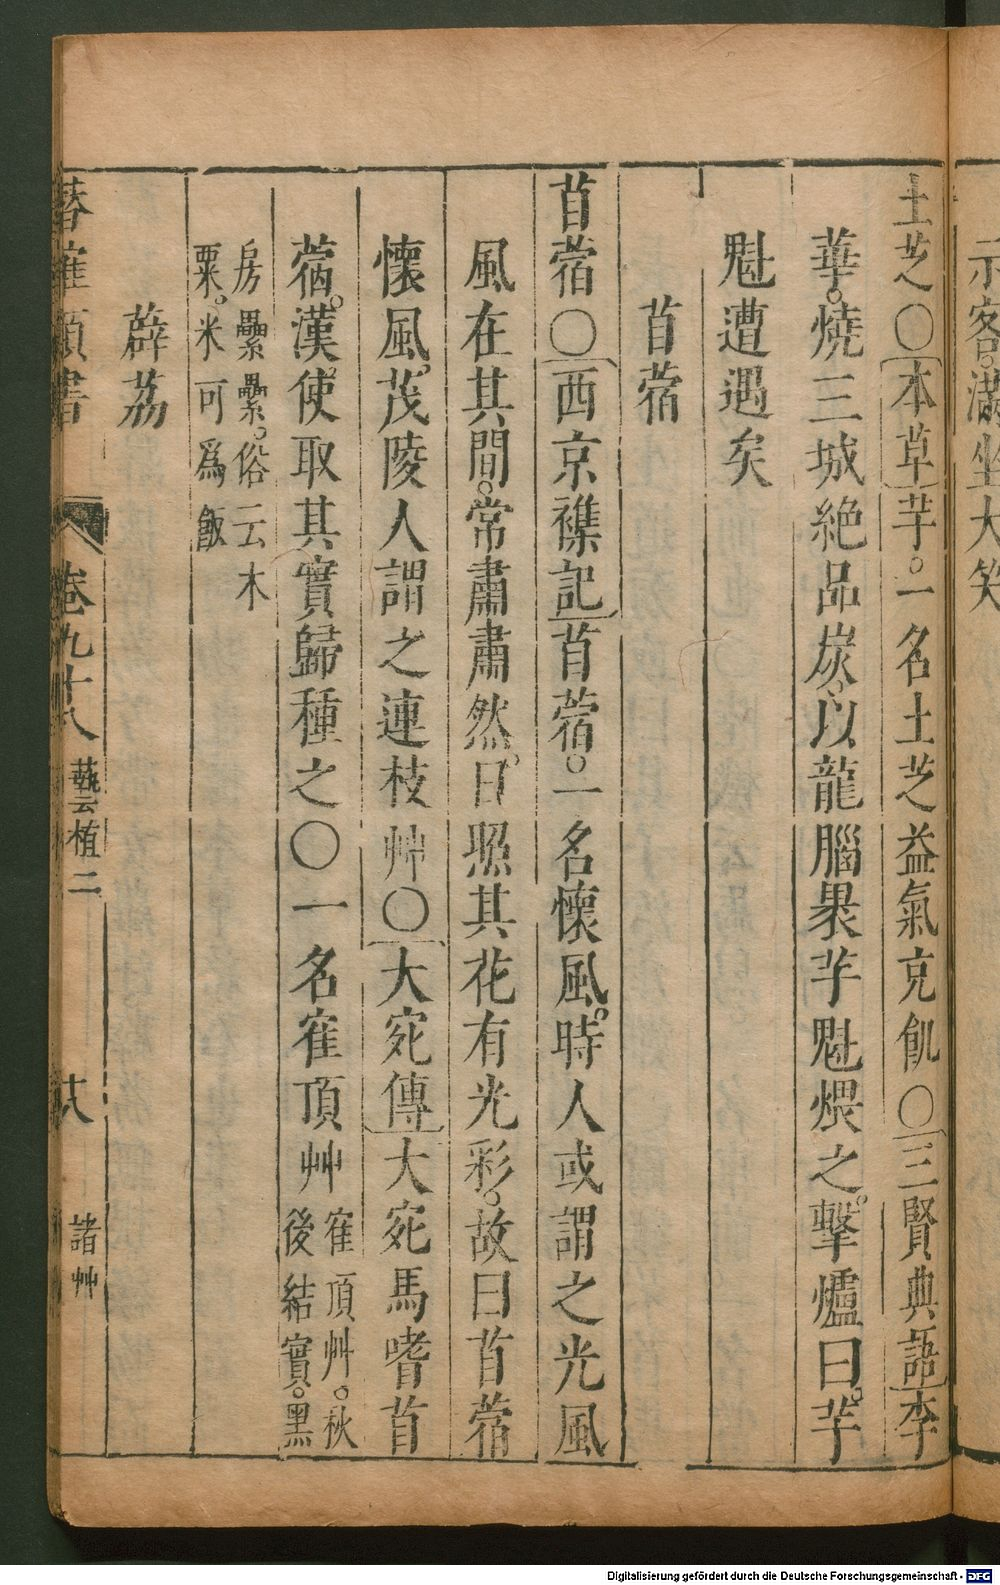 示客。滿坐大笑
土芝〇本草芋。一名土芝益氣充飢〇三賢典語李
華。燒三城絶品炭。以龍腦裹芋魁煨之。擊爐曰。芋
魁遭遇矣
苜蓿
苜蓿〇西京襍記苜蓿。一名懷風。時人或謂之光風
風在其間。常肅肅然。日照其花有光彩。故曰苜蓿
懷風。茂陵人謂之連枝艸〇大宛傳大宛馬嗜苜
蓿。漢使取其實歸種之〇一名寉頂艸寉頂艸。秋
後結實。黑
房纍纍。俗云木
粟。米可為飯
薜荔
卷九十八 藝植二 十八 諸艸
Digitalisierung gefördert durch die Deutsche Forschungsgemeinschaft - DFG